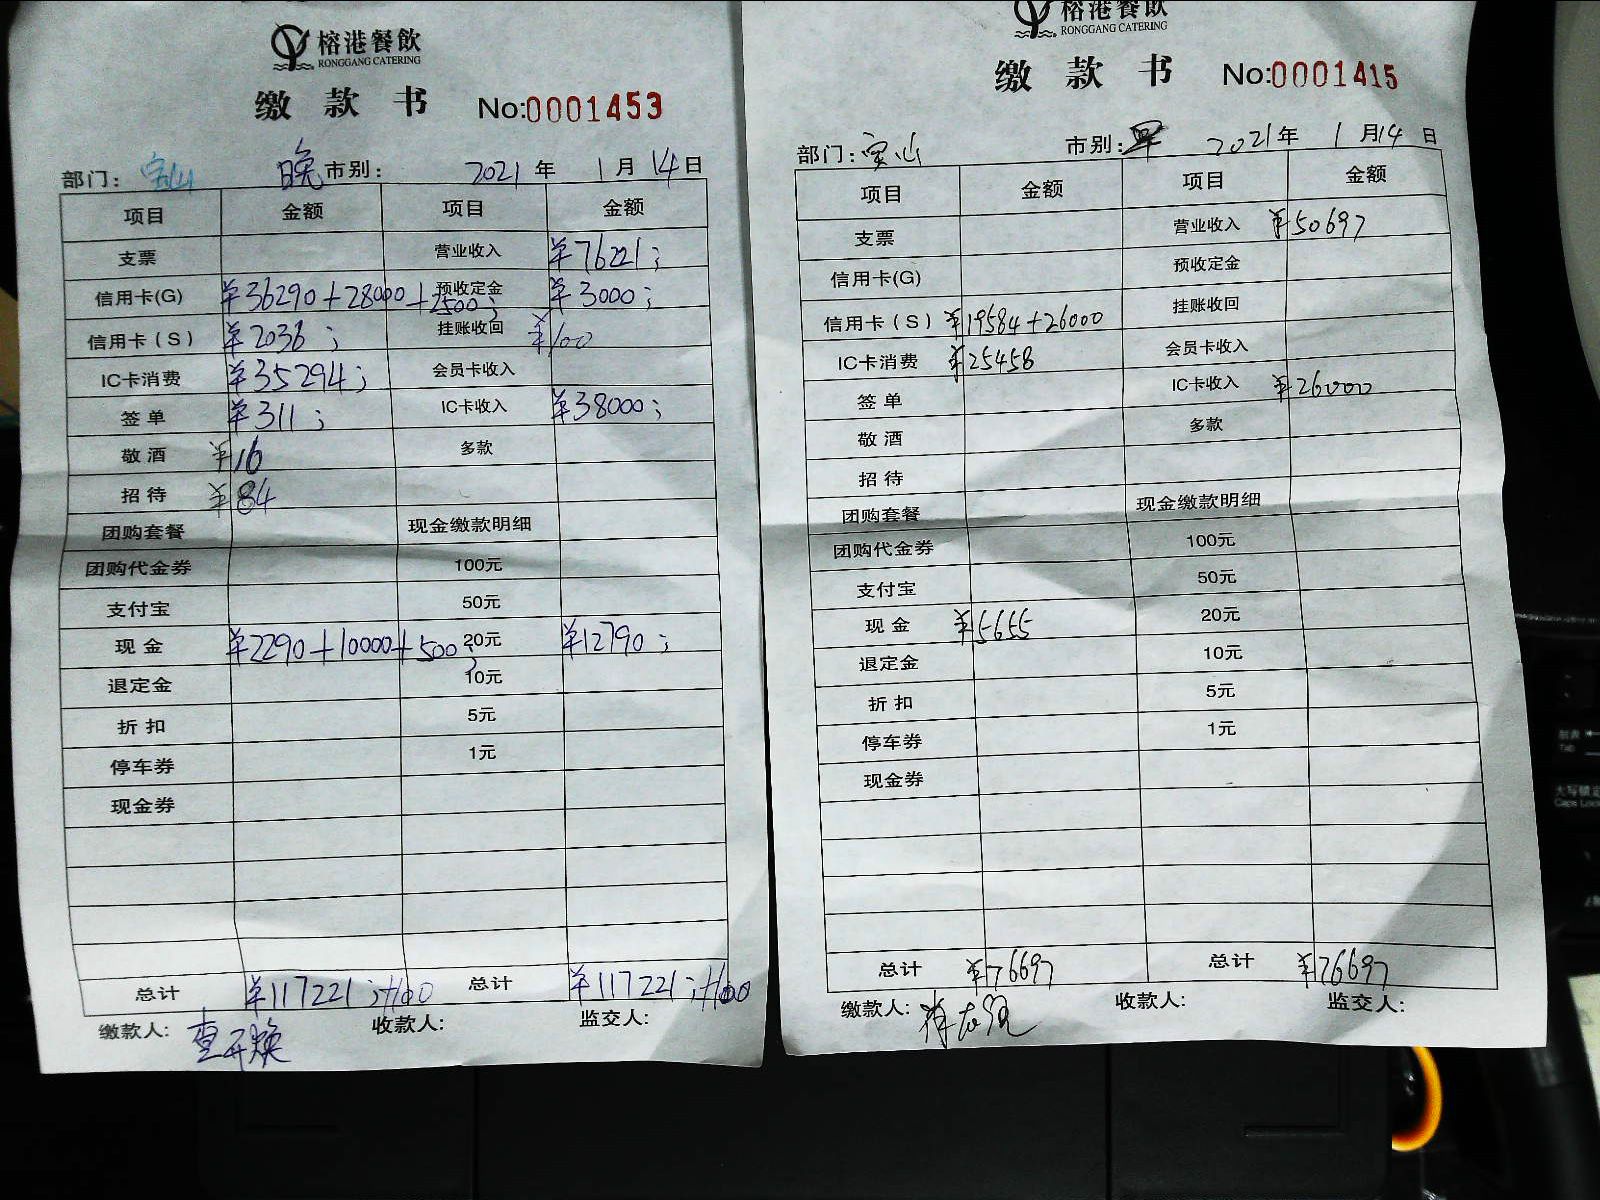 榕港餐飲
RONGGANG CATERING
缴款书 No:0001453
部门: 宝山 晚市别: 2021年1月14日
项目 金额 项目 金额
支票 营业收入 ¥76221;
信用卡(G) ¥36290+28000+2500; 预收定金 ¥3000;
信用卡(S) ¥2036; 挂账收回 ¥100
IC卡消费 ¥35294; 会员卡收入
签单 ¥311; IC卡收入 ¥38000;
敬酒 ¥16 多款
招待 ¥84
团购套餐 现金缴款明细
团购代金券 100元
支付宝 50元
现金 ¥2290+10000+500; 20元 ¥12790;
退定金 10元
折扣 5元
停车券 1元
现金券
总计 ¥117221;+100 总计 ¥117221;+100
缴款人: 收款人: 监交人:
榕港餐飲
RONGGANG CATERING
缴款书 No:0001415
部门: 宝山 市别: 早 2021年1月14日
项目 金额 项目 金额
支票 营业收入 ¥50697
信用卡(G) 预收定金
信用卡(S) ¥19584+26000 挂账收回
IC卡消费 ¥25458 会员卡收入
签单 IC卡收入 ¥26000
敬酒 多款
招待
团购套餐 现金缴款明细
团购代金券 100元
支付宝 50元
现金 ¥5655 20元
退定金 10元
折扣 5元
停车券 1元
现金券
总计 ¥76697 总计 ¥76697
缴款人: 收款人: 监交人: